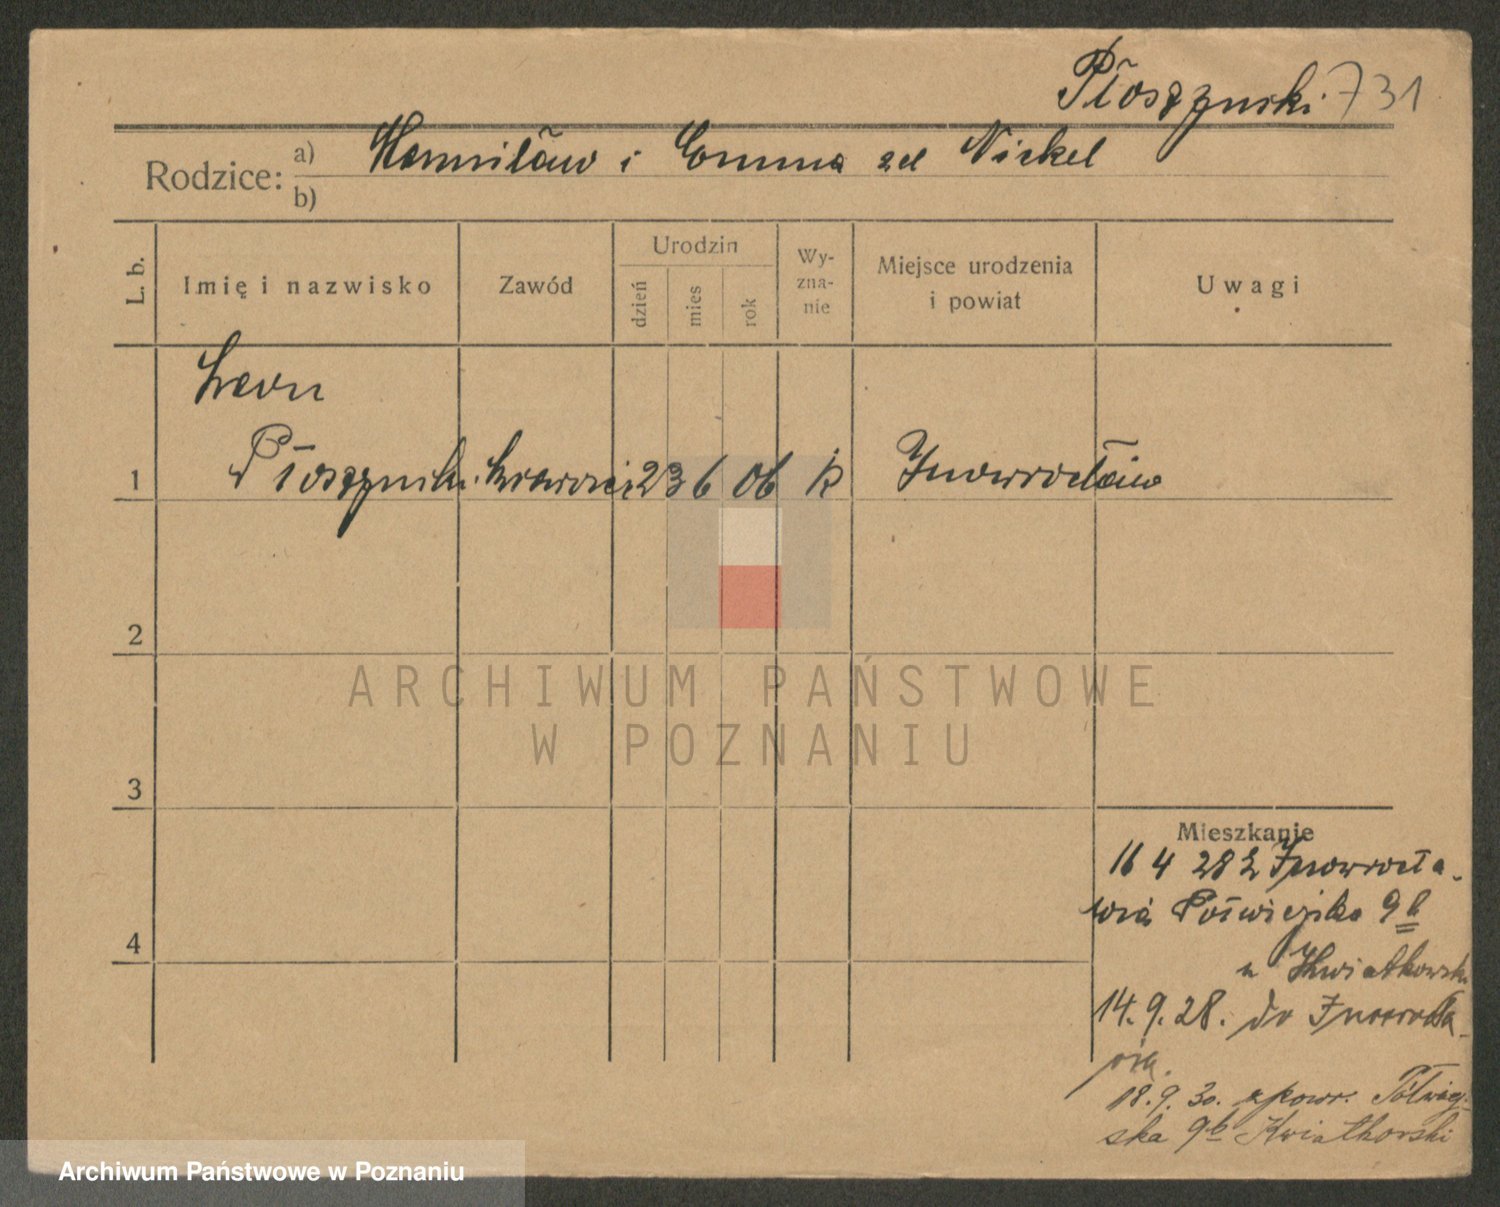 Płoszynski 731
Rodzice: a) i Emma zd Nickel
b)
L. b. Imię i nazwisko Zawód Urodzin dzień mies rok Wy-zna-nie Miejsce urodzenia i powiat Uwagi
Leon
1 Płoszynski krawiec 23 6 06 k Inowrocław
2
ARCHIWUM PAŃSTWOWE
W POZNANIU
3
Mieszkanie
16 4 28 z Inowrocła-
wia 9 b
4
u Kwiatkowski
14. 9. 28. do Inowrocła-
wia.
18. 9. 30. z powr. Półwiej-
ska 9b Kwiatkowski
Archiwum Państwowe w Poznaniu